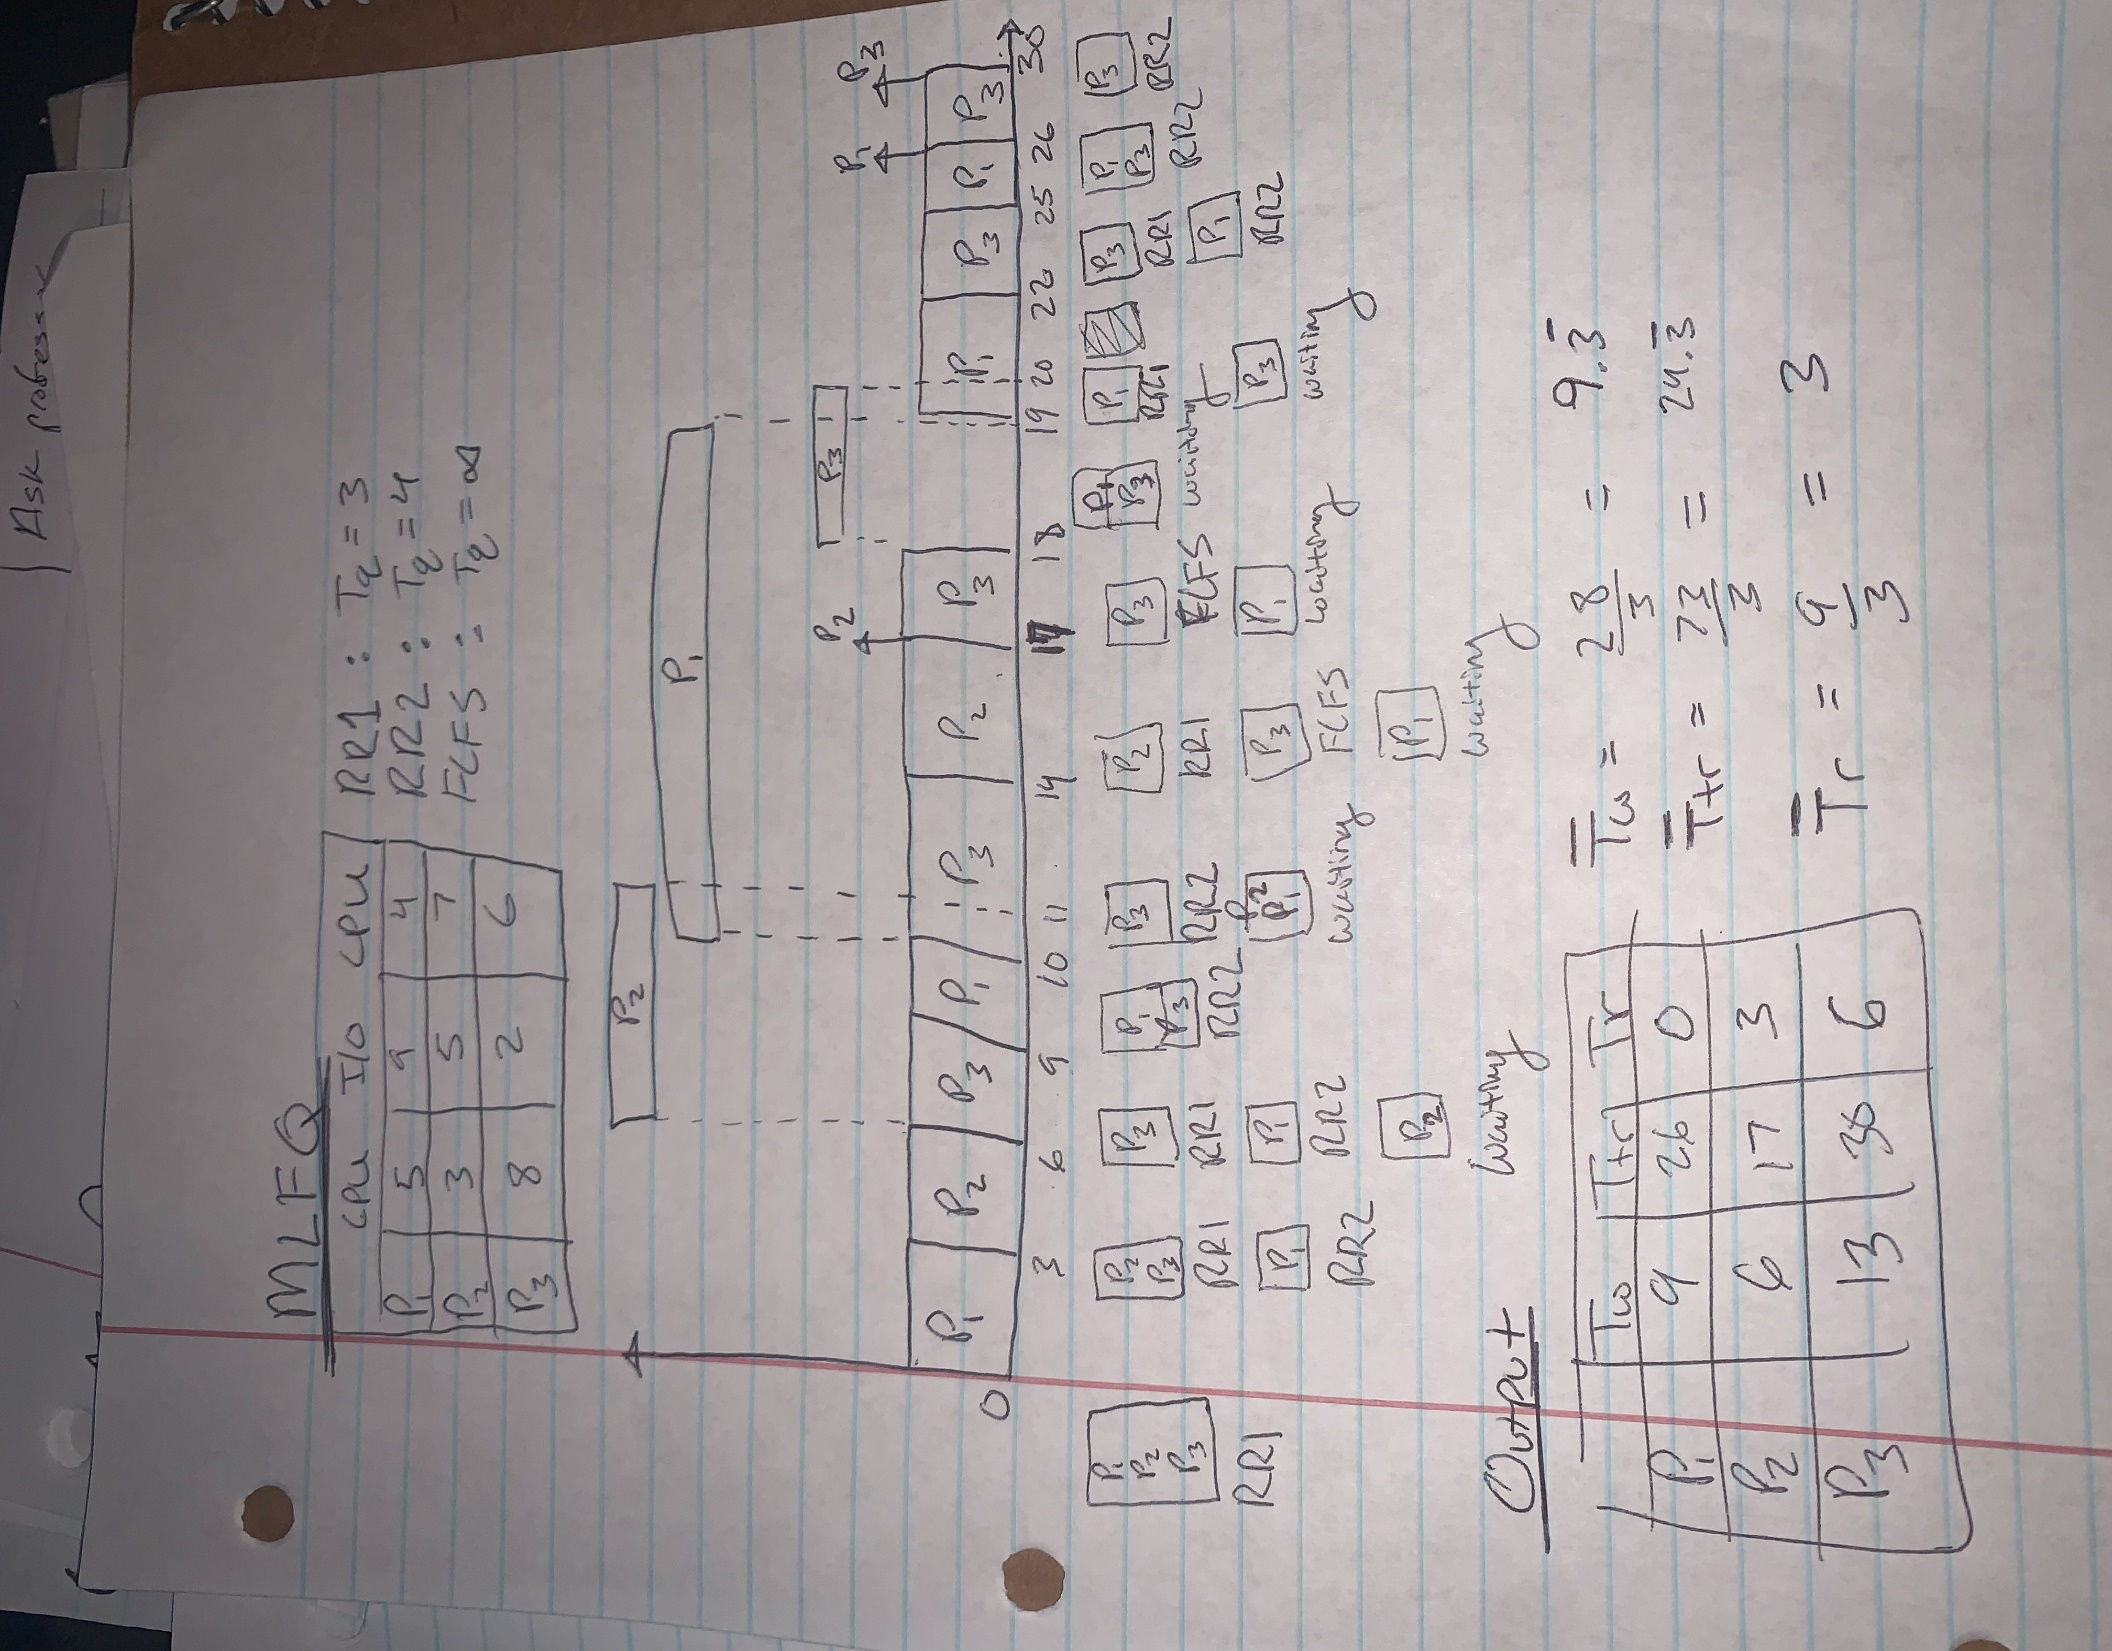 Ask professor
MLFQ
CPU I/O CPU
P1 5 9 4
P2 3 5 7
P3 8 2 6
RR1 : Tq = 3
RR2 : Tq = 4
FCFS : Tq = ∞
P2
P1
P3
P2
P1
P3
P1 P2 P3 P1 P3 P2 P3 P1 P3 P1 P3
0 3 6 9 10 11 14 17 18 19 20 22 25 26 30
P1 P2 P3
RR1
P2 P3
RR1
P1
RR2
P3
RR1
P1
RR2
P2
waiting
P1 P3
RR2
P3
RR2
P2 P1
waiting
P2
RR1
P3
FCFS
P1
waiting
P3
FCFS
P1
waiting
P1 P3
waiting
P1
RR1
P3
waiting
P3
RR1
P1
RR2
P1 P3
RR2
P3
RR2
Output
Tw Ttr Tr
P1 9 26 0
P2 6 17 3
P3 13 30 6
Tw = 28/3 = 9.3
Ttr = 73/3 = 24.3
Tr = 9/3 = 3